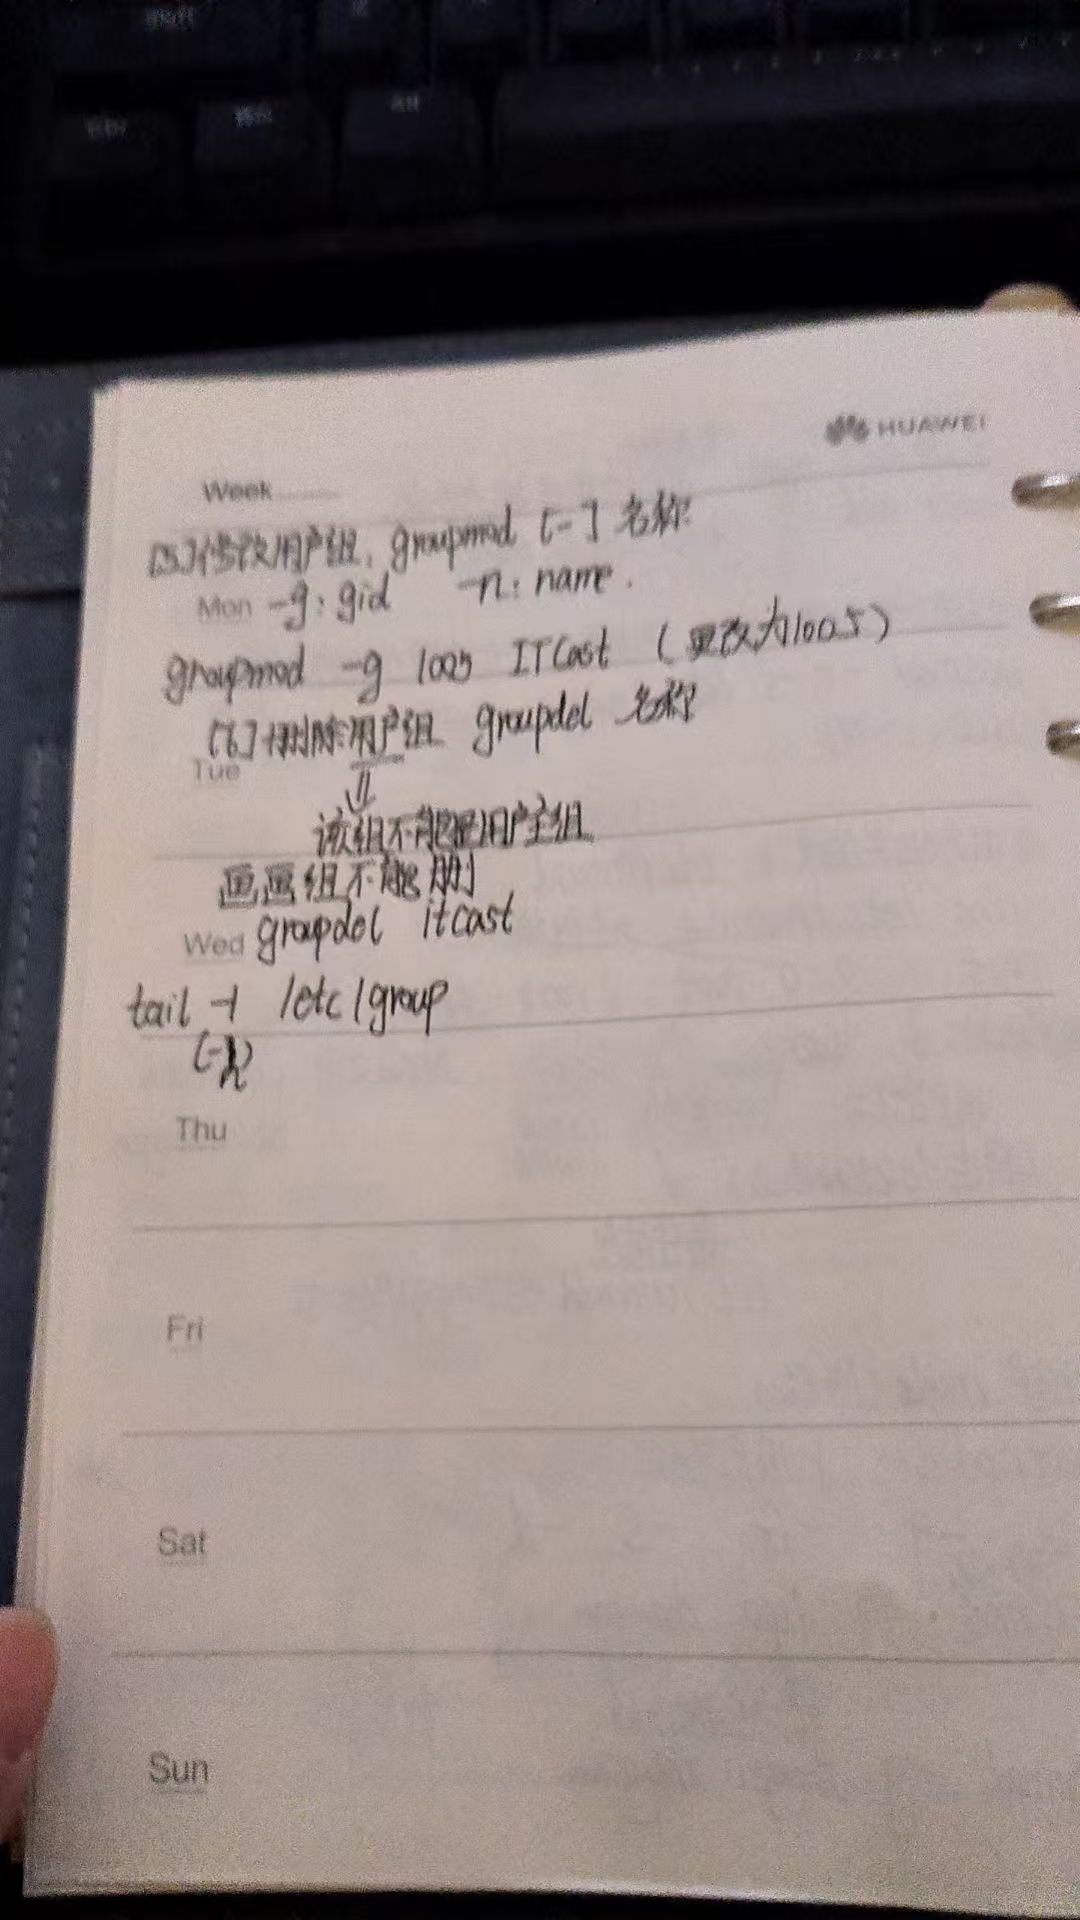 HUAWEI
Week
[5]修改用户组, groupmod [-] 名称
Mon -g: gid -n: name.
groupmod -g 1005 ITCast (更改为1005)
[6]删除用户组 groupdel 名称
Tue
该组不能是用户主组
组不能删
Wed groupdel itcast
tail -1 /etc/group
Thu
Fri
Sat
Sun